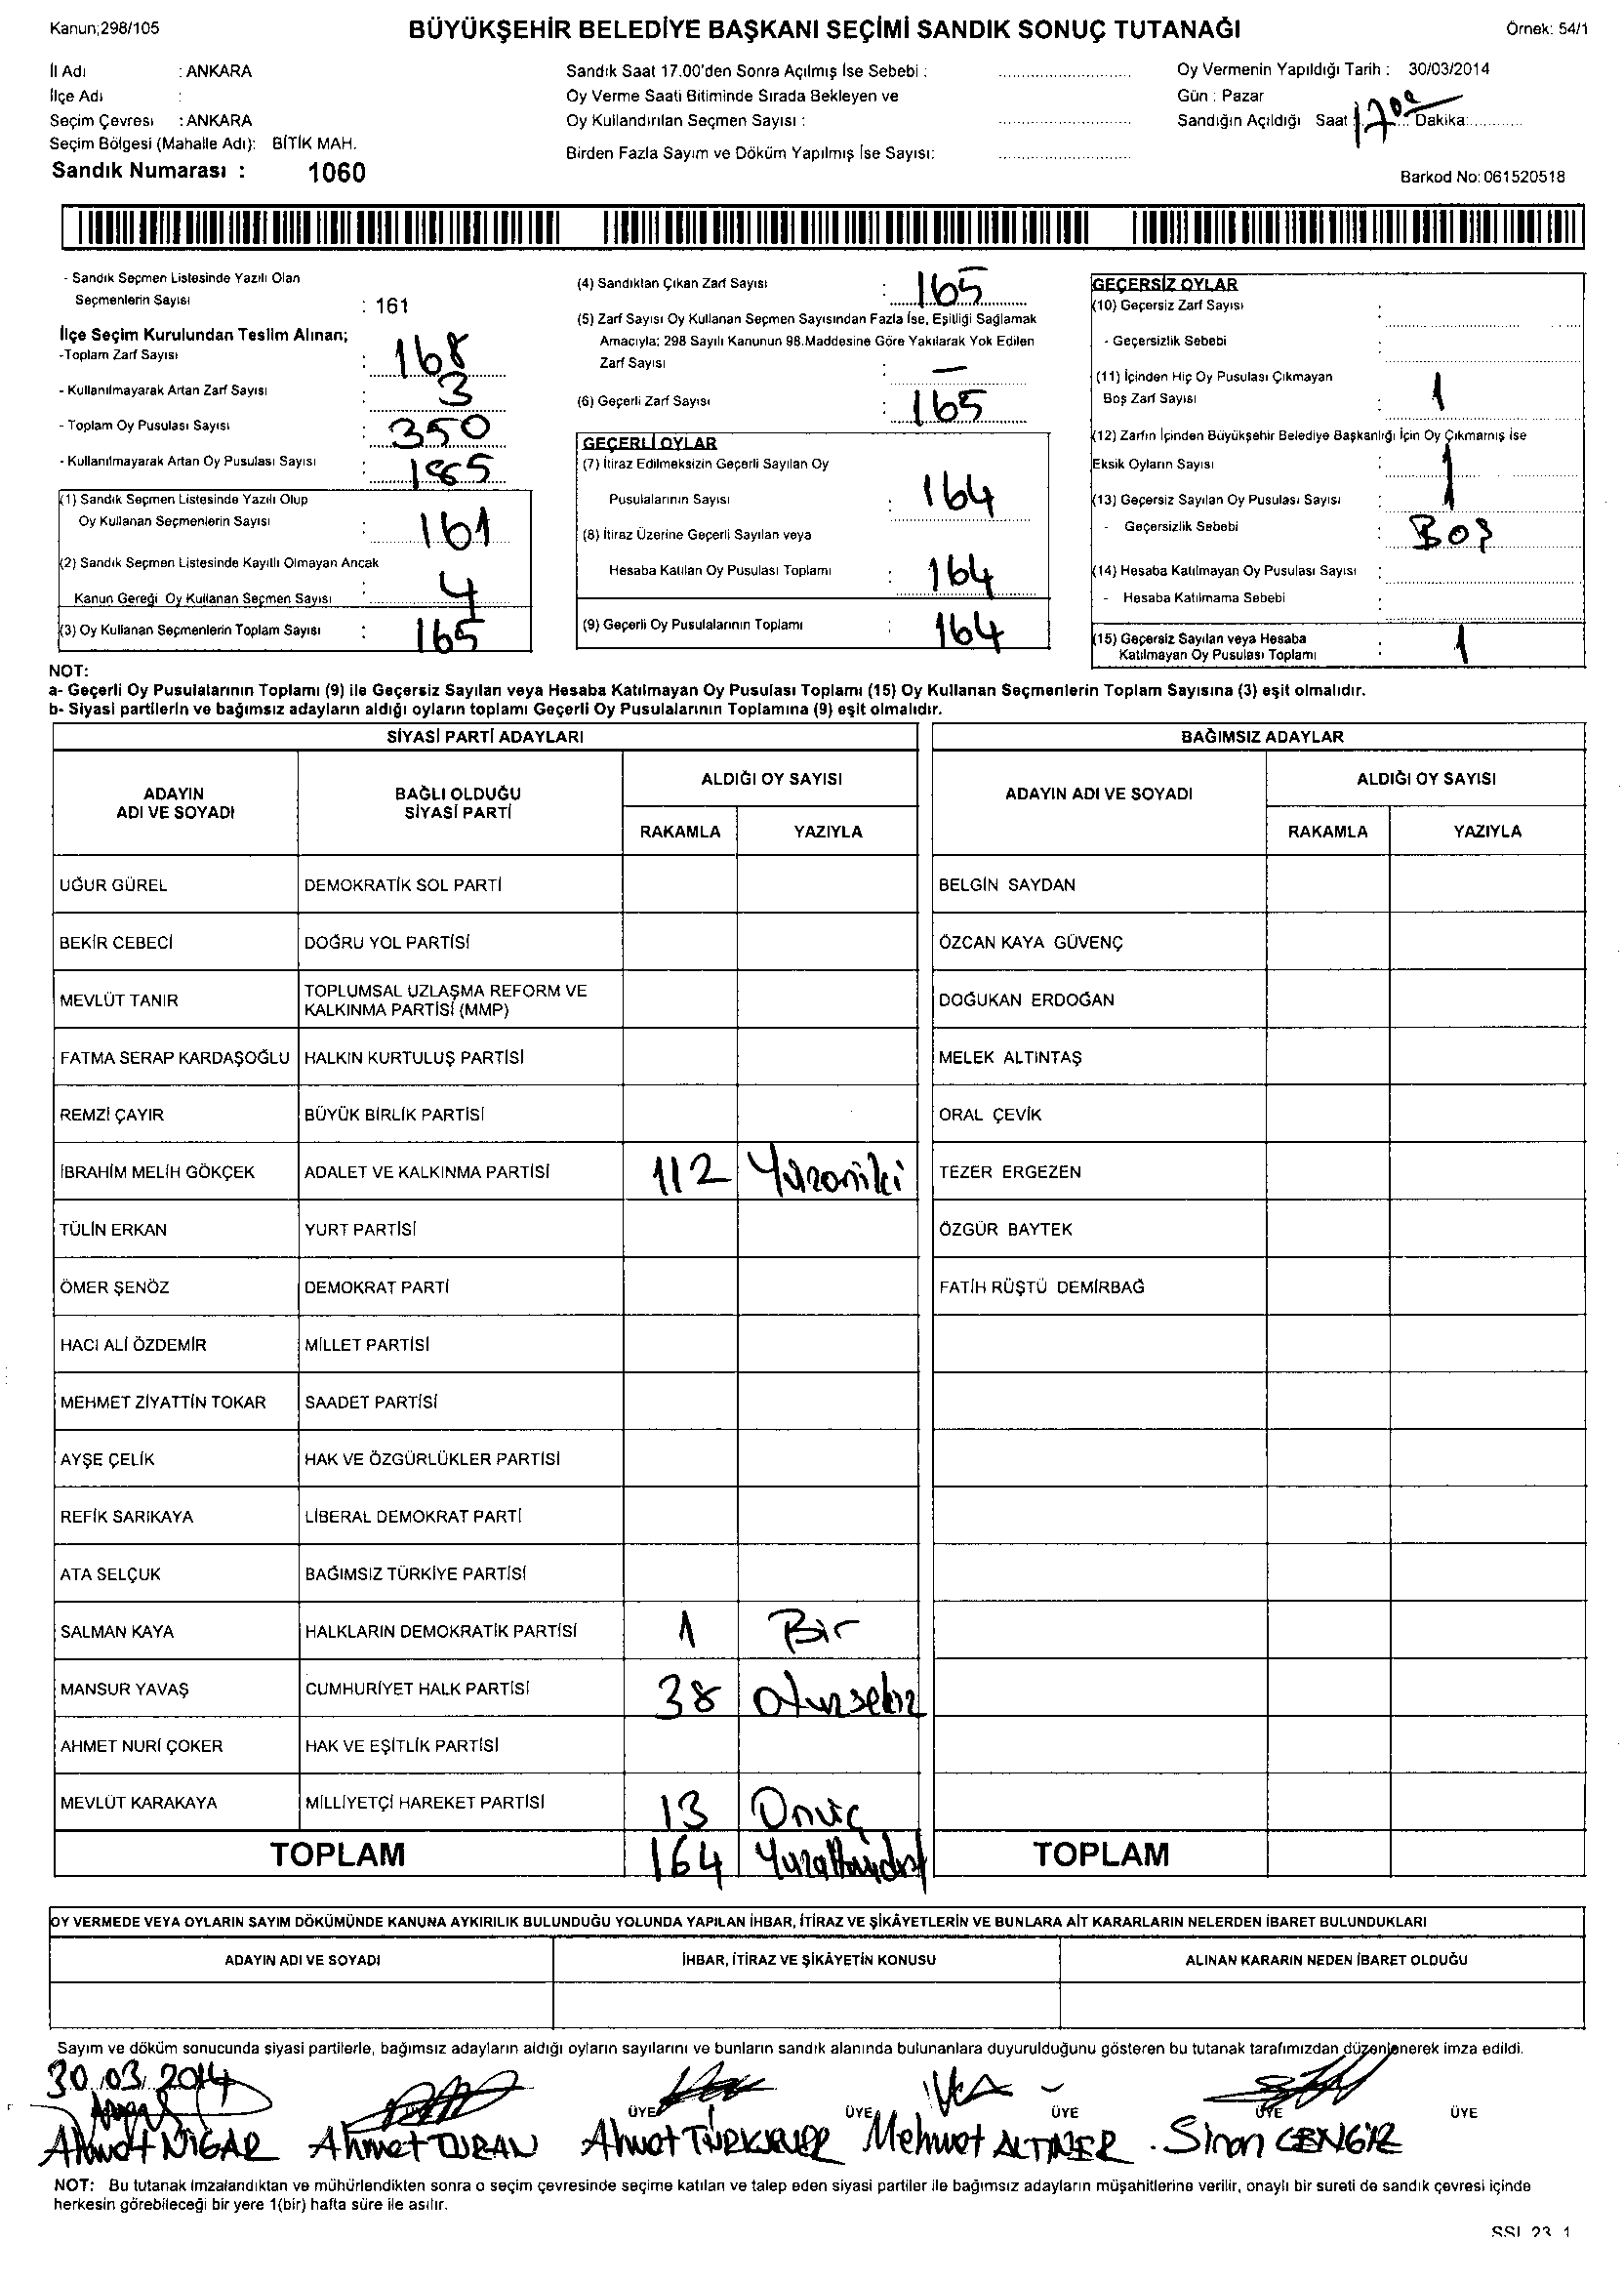 Kanun;298/105
BÜYÜKŞEHİR BELEDİYE BAŞKANI SEÇİMİ SANDIK SONUÇ TUTANAĞI
Örnek: 54/1
İl Adı : ANKARA
İlçe Adı :
Seçim Çevresi : ANKARA
Seçim Bölgesi (Mahalle Adı): BİTİK MAH.
Sandık Numarası : 1060
Sandık Saat 17.00'den Sonra Açılmış İse Sebebi :
Oy Verme Saati Bitiminde Sırada Bekleyen ve
Oy Kullandırılan Seçmen Sayısı :
Birden Fazla Sayım ve Döküm Yapılmış İse Sayısı:
Oy Vermenin Yapıldığı Tarih : 30/03/2014
Gün : Pazar
Sandığın Açıldığı Saat 17 00 Dakika:
Barkod No: 061520518
- Sandık Seçmen Listesinde Yazılı Olan
Seçmenlerin Sayısı : 161
İlçe Seçim Kurulundan Teslim Alınan;
-Toplam Zarf Sayısı : 168
- Kullanılmayarak Artan Zarf Sayısı : 3
- Toplam Oy Pusulası Sayısı : 350
- Kullanılmayarak Artan Oy Pusulası Sayısı : 185
(1) Sandık Seçmen Listesinde Yazılı Olup
Oy Kullanan Seçmenlerin Sayısı : 161
(2) Sandık Seçmen Listesinde Kayıtlı Olmayan Ancak
Kanun Gereği Oy Kullanan Seçmen Sayısı : 4
(3) Oy Kullanan Seçmenlerin Toplam Sayısı : 165
(4) Sandıktan Çıkan Zarf Sayısı : 165
(5) Zarf Sayısı Oy Kullanan Seçmen Sayısından Fazla İse, Eşitliği Sağlamak
Amacıyla; 298 Sayılı Kanunun 98.Maddesine Göre Yakılarak Yok Edilen
Zarf Sayısı : —
(6) Geçerli Zarf Sayısı : 165
GEÇERLİ OYLAR
(7) İtiraz Edilmeksizin Geçerli Sayılan Oy
Pusulalarının Sayısı : 164
(8) İtiraz Üzerine Geçerli Sayılan veya
Hesaba Katılan Oy Pusulası Toplamı : 164
(9) Geçerli Oy Pusulalarının Toplamı : 164
GEÇERSİZ OYLAR
(10) Geçersiz Zarf Sayısı :
- Geçersizlik Sebebi :
(11) İçinden Hiç Oy Pusulası Çıkmayan
Boş Zarf Sayısı : 1
(12) Zarfın İçinden Büyükşehir Belediye Başkanlığı İçin Oy Çıkmamış ise
Eksik Oyların Sayısı :
(13) Geçersiz Sayılan Oy Pusulası Sayısı : 1
- Geçersizlik Sebebi : Boş
(14) Hesaba Katılmayan Oy Pusulası Sayısı :
- Hesaba Katılmama Sebebi :
(15) Geçersiz Sayılan veya Hesaba
Katılmayan Oy Pusulası Toplamı : 1
NOT:
a- Geçerli Oy Pusulalarının Toplamı (9) ile Geçersiz Sayılan veya Hesaba Katılmayan Oy Pusulası Toplamı (15) Oy Kullanan Seçmenlerin Toplam Sayısına (3) eşit olmalıdır.
b- Siyasi partilerin ve bağımsız adayların aldığı oyların toplamı Geçerli Oy Pusulalarının Toplamına (9) eşit olmalıdır.
SİYASİ PARTİ ADAYLARI
ADAYIN ADI VE SOYADI
BAĞLI OLDUĞU SİYASİ PARTİ
ALDIĞI OY SAYISI
RAKAMLA YAZIYLA
UĞUR GÜREL DEMOKRATİK SOL PARTİ
BEKİR CEBECİ DOĞRU YOL PARTİSİ
MEVLÜT TANIR TOPLUMSAL UZLAŞMA REFORM VE KALKINMA PARTİSİ (MMP)
FATMA SERAP KARDAŞOĞLU HALKIN KURTULUŞ PARTİSİ
REMZİ ÇAYIR BÜYÜK BİRLİK PARTİSİ
İBRAHİM MELİH GÖKÇEK ADALET VE KALKINMA PARTİSİ 112 Yüzoniki
TÜLİN ERKAN YURT PARTİSİ
ÖMER ŞENÖZ DEMOKRAT PARTİ
HACI ALİ ÖZDEMİR MİLLET PARTİSİ
MEHMET ZİYATTİN TOKAR SAADET PARTİSİ
AYŞE ÇELİK HAK VE ÖZGÜRLÜKLER PARTİSİ
REFİK SARIKAYA LİBERAL DEMOKRAT PARTİ
ATA SELÇUK BAĞIMSIZ TÜRKİYE PARTİSİ
SALMAN KAYA HALKLARIN DEMOKRATİK PARTİSİ 1 Bir
MANSUR YAVAŞ CUMHURİYET HALK PARTİSİ 38 Otuzsekiz
AHMET NURİ ÇOKER HAK VE EŞİTLİK PARTİSİ
MEVLÜT KARAKAYA MİLLİYETÇİ HAREKET PARTİSİ 13 Onüç
TOPLAM 164 Yüzaltmışdört
BAĞIMSIZ ADAYLAR
ADAYIN ADI VE SOYADI
ALDIĞI OY SAYISI
RAKAMLA YAZIYLA
BELGİN SAYDAN
ÖZCAN KAYA GÜVENÇ
DOĞUKAN ERDOĞAN
MELEK ALTINTAŞ
ORAL ÇEVİK
TEZER ERGEZEN
ÖZGÜR BAYTEK
FATİH RÜŞTÜ DEMİRBAĞ
TOPLAM
OY VERMEDE VEYA OYLARIN SAYIM DÖKÜMÜNDE KANUNA AYKIRILIK BULUNDUĞU YOLUNDA YAPILAN İHBAR, İTİRAZ VE ŞİKÂYETLERİN VE BUNLARA AİT KARARLARIN NELERDEN İBARET BULUNDUKLARI
ADAYIN ADI VE SOYADI
İHBAR, İTİRAZ VE ŞİKÂYETİN KONUSU
ALINAN KARARIN NEDEN İBARET OLDUĞU
Sayım ve döküm sonucunda siyasi partilerle, bağımsız adayların aldığı oyların sayılarını ve bunların sandık alanında bulunanlara duyurulduğunu gösteren bu tutanak tarafımızdan düzenlenerek imza edildi.
30.03.2014
ÜYE ÜYE ÜYE ÜYE ÜYE
Ahmet NİGAR Ahmet TURAN Ahmet Mehmet ALTINER Sinan CENGİZ
NOT: Bu tutanak imzalandıktan ve mühürlendikten sonra o seçim çevresinde seçime katılan ve talep eden siyasi partiler ile bağımsız adayların müşahitlerine verilir, onaylı bir sureti de sandık çevresi içinde
herkesin görebileceği bir yere 1(bir) hafta süre ile asılır.